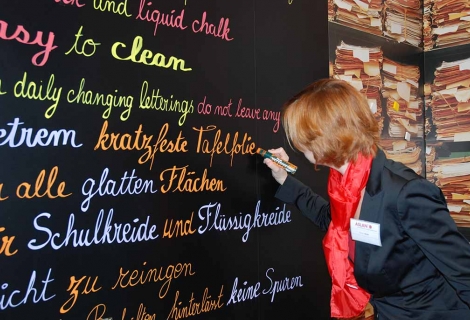 and liquid chalk
easy to clean
daily changing letterings do not leave any
extrem kratzfeste Tafelfolie
alle glatten Flächen
Schulkreide und Flüssigkreide
zu reinigen
hinterlässt keine Spuren